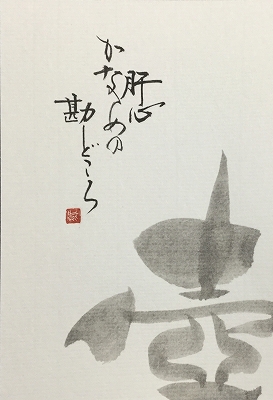 肝心
かなめの
勘どころ
壺